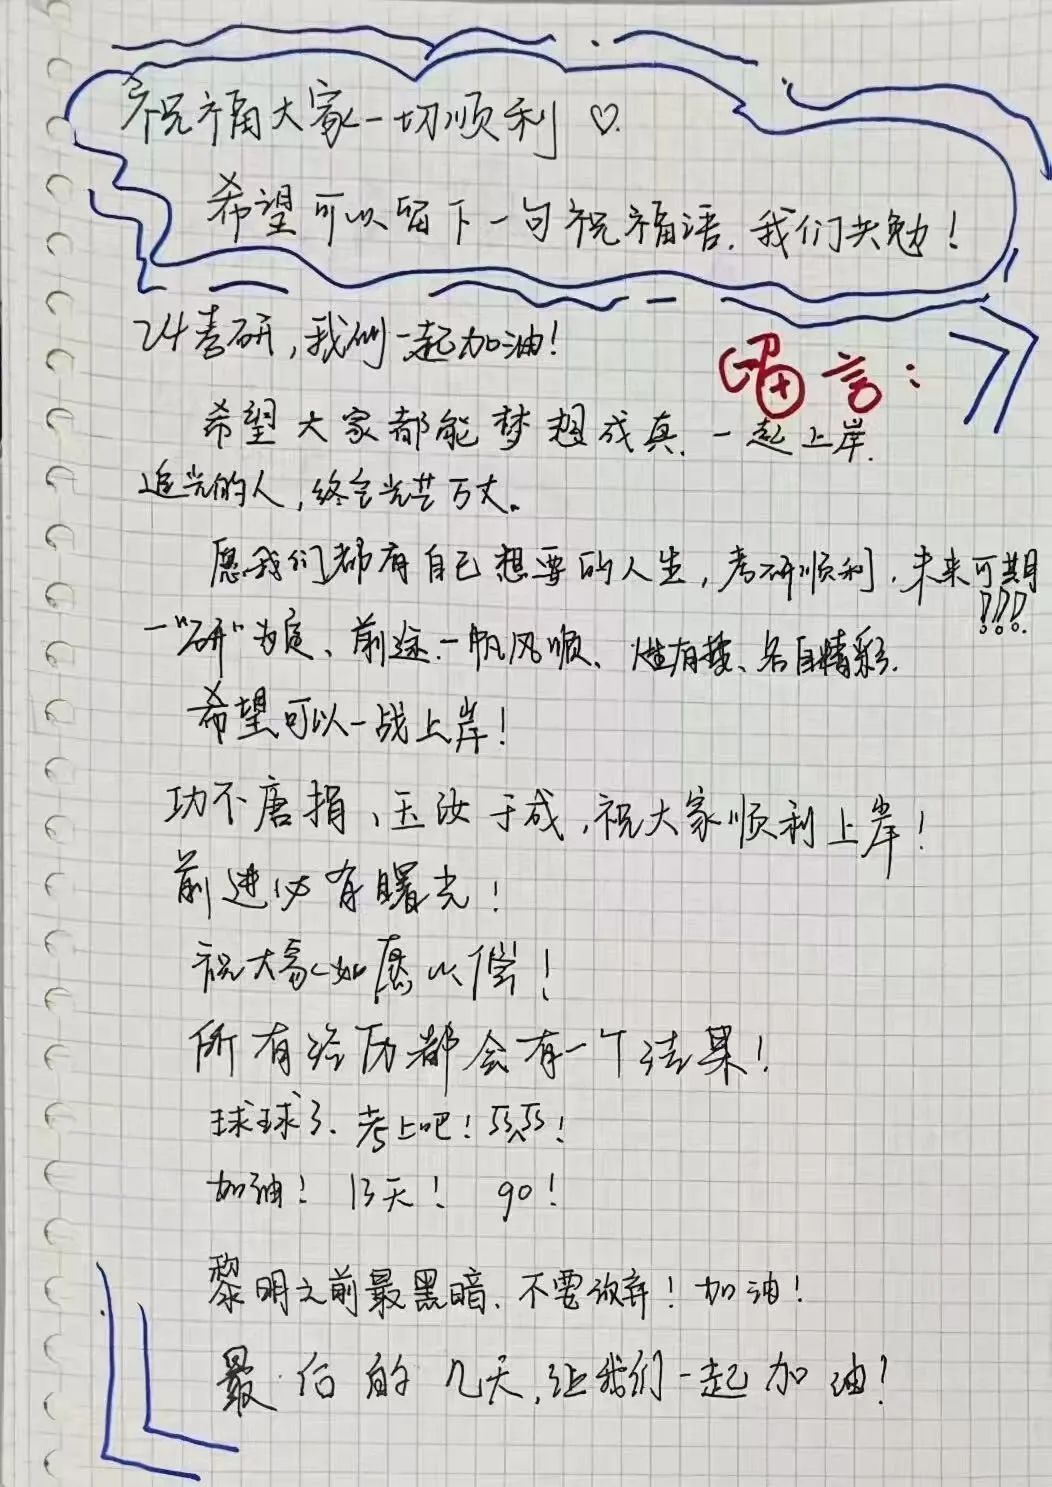 祝福大家一切顺利♡.
希望可以留下一句祝福语.我们共勉!
24考研,我们一起加油!
留言:
希望大家都能梦想成真.一起上岸.
追光的人,终会光芒万丈。
愿我们都有自己想要的人生,考研顺利.未来可期!!!
一"研"为定、前途一帆风顺、各自精彩.
希望可以一战上岸!
功不唐捐、玉汝于成,祝大家顺利上岸!
前进必有曙光!
祝大家如愿以偿!
所有经历都会有一个结果!
球球了.考上吧!
加油!13天!90!
黎明之前最黑暗.不要放弃!加油!
最后的几天,让我们一起加油!